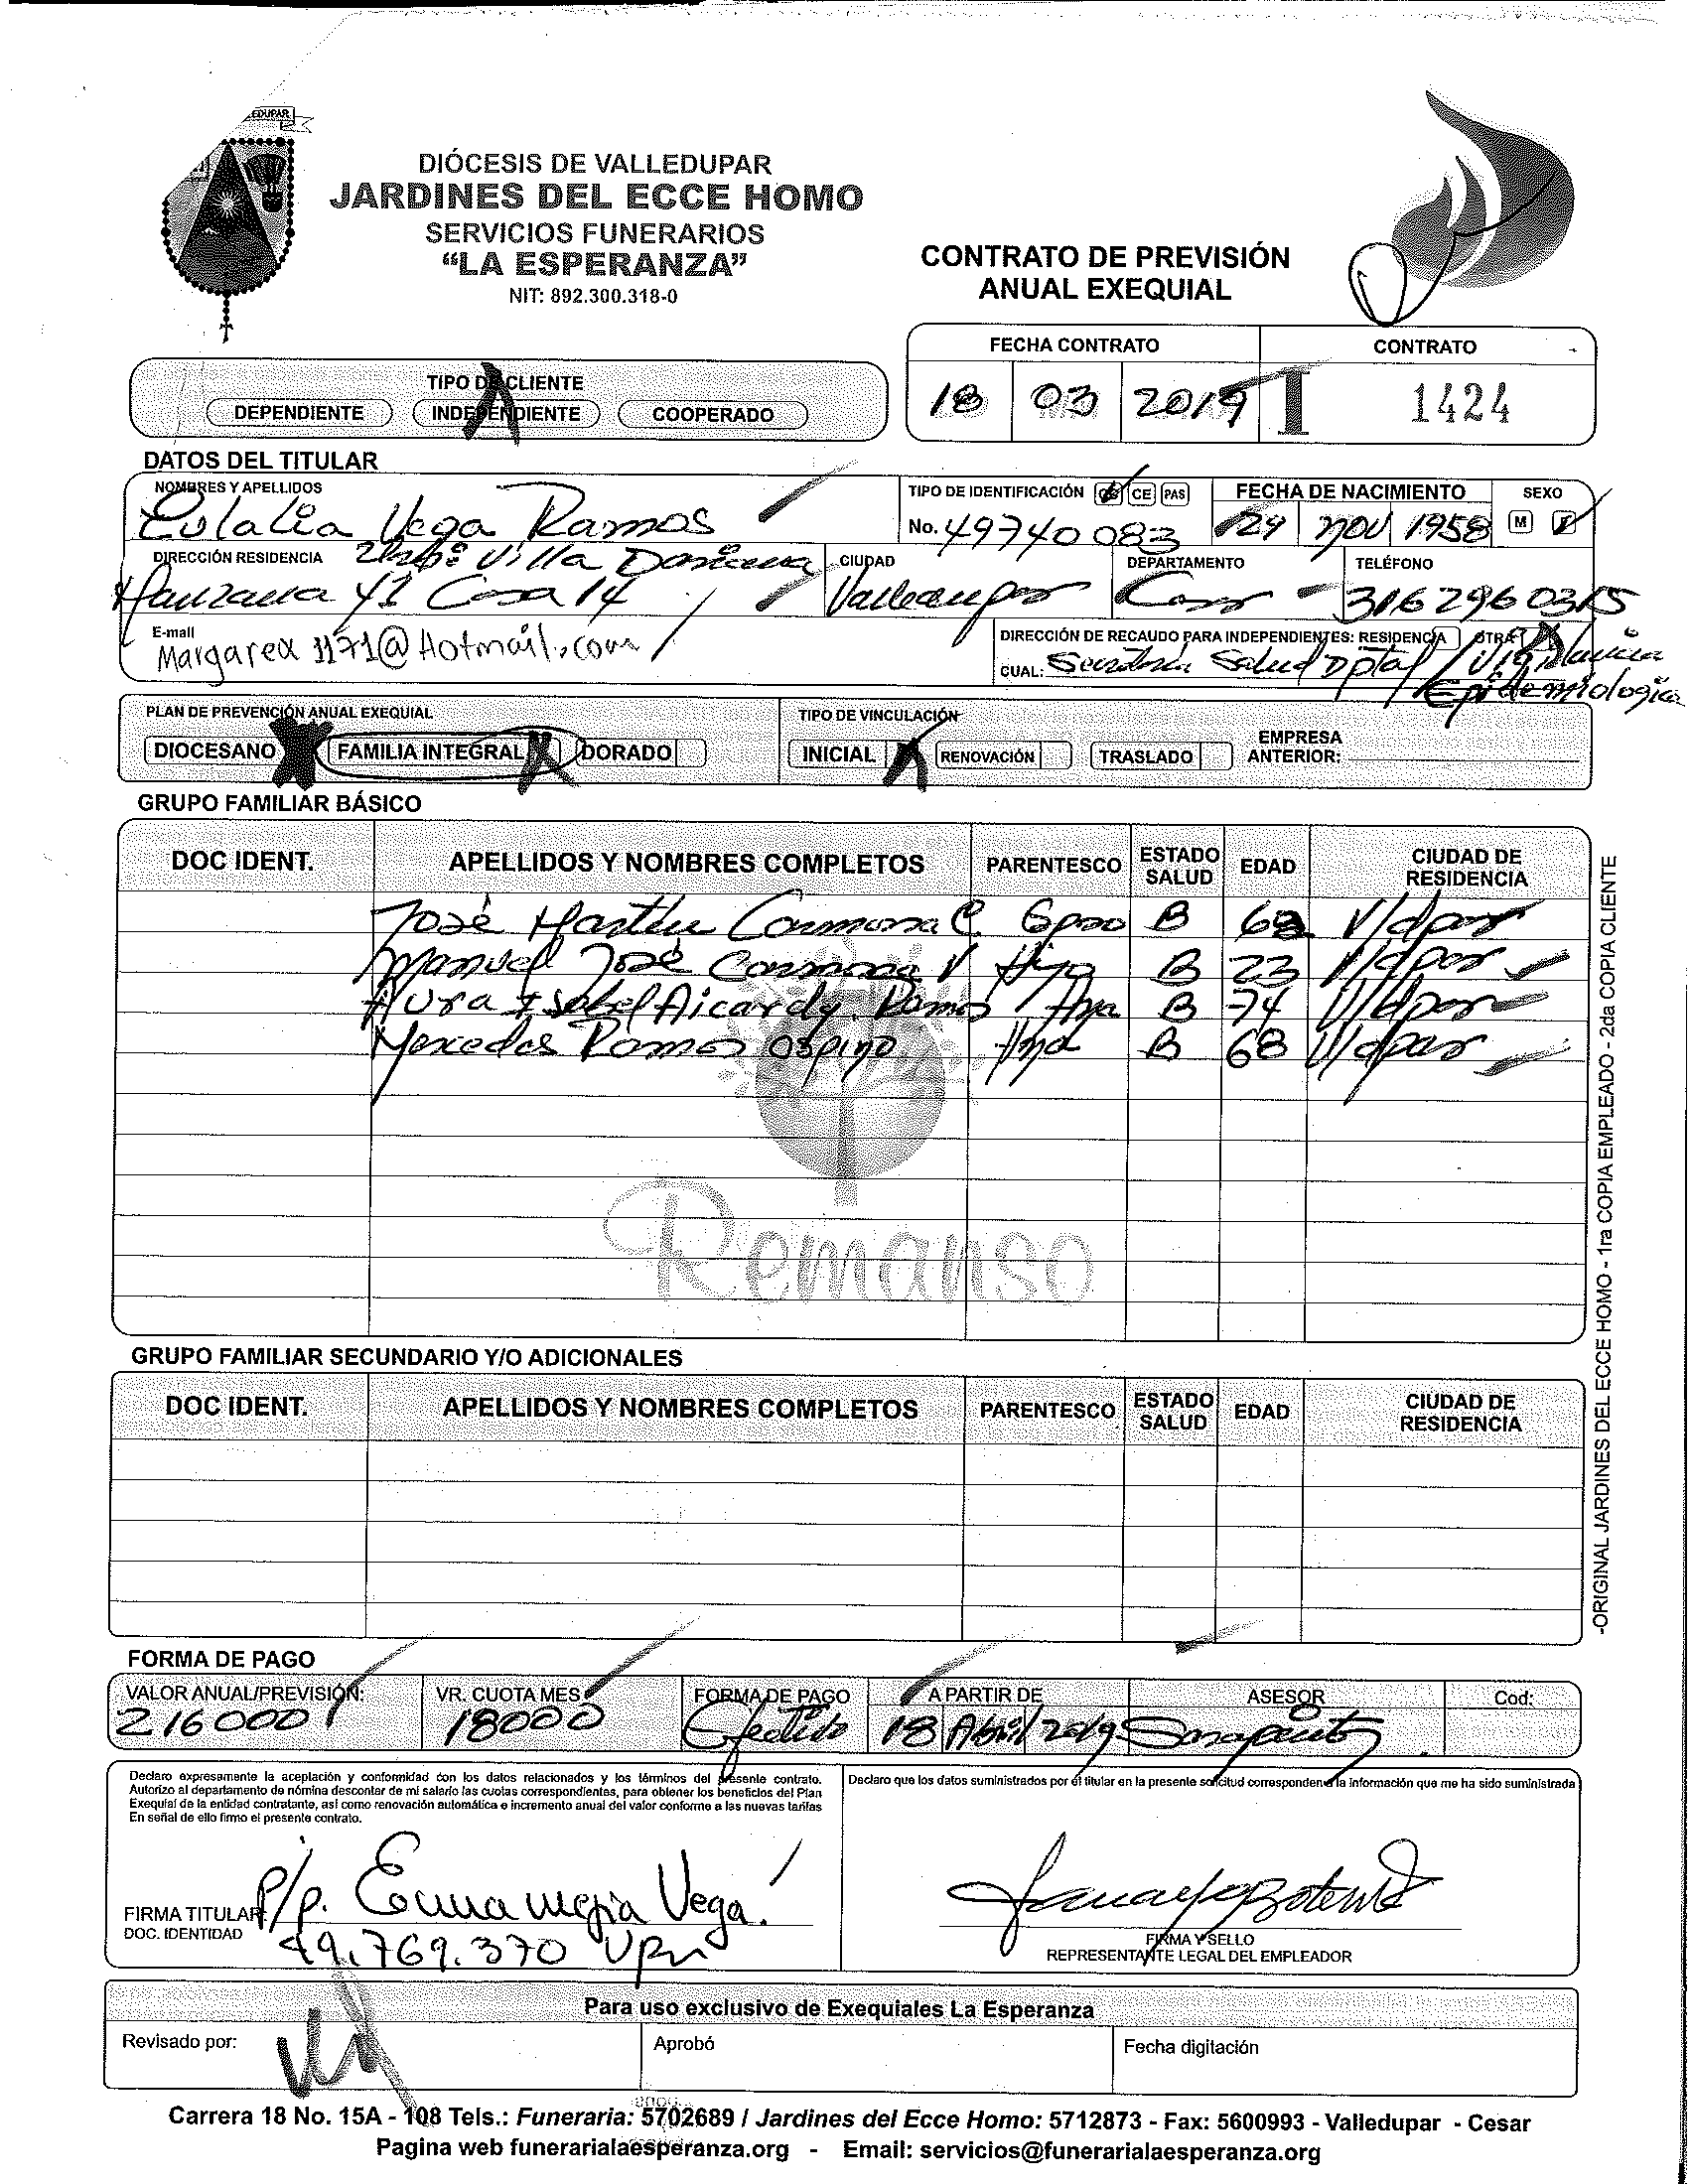 EDUPAR
DIÓCESIS DE VALLEDUPAR
JARDINES DEL ECCE HOMO
SERVICIOS FUNERARIOS
“LA ESPERANZA”
NIT: 892.300.318-0
CONTRATO DE PREVISIÓN
ANUAL EXEQUIAL
FECHA CONTRATO CONTRATO
18 03 2019 I 1424
TIPO DE CLIENTE
DEPENDIENTE INDEPENDIENTE X COOPERADO
DATOS DEL TITULAR
NOMBRES Y APELLIDOS
Eulalia Vega Ramos
TIPO DE IDENTIFICACIÓN CC CE PAS
No. 49740083
FECHA DE NACIMIENTO
29 nov 1958
SEXO
M F
DIRECCIÓN RESIDENCIA Urb: Villa
Manzana 41 Casa 14
CIUDAD
Valledupar
DEPARTAMENTO
Cesar
TELÉFONO
E-mail
Margarex1171@Hotmail.com
DIRECCIÓN DE RECAUDO PARA INDEPENDIENTES: RESIDENCIA OTRA X
CUAL: Secretaria Salud Dptal / Vigilancia
Epidemiologica
PLAN DE PREVENCIÓN ANUAL EXEQUIAL
DIOCESANO FAMILIA INTEGRAL X DORADO
TIPO DE VINCULACIÓN
INICIAL X RENOVACIÓN TRASLADO EMPRESA
ANTERIOR:
GRUPO FAMILIAR BÁSICO
DOC IDENT. APELLIDOS Y NOMBRES COMPLETOS PARENTESCO ESTADO SALUD EDAD CIUDAD DE RESIDENCIA
José Martin Carmona C. Esposo B V/dpar
Manuel José Carmona V Hijo B 23 V/dpar
Aura Isabel Aicardy Ramos B 74 V/dpar
Mercedes Ramos Ospino B 68 V/dpar
Remanso
GRUPO FAMILIAR SECUNDARIO Y/O ADICIONALES
DOC IDENT. APELLIDOS Y NOMBRES COMPLETOS PARENTESCO ESTADO SALUD EDAD CIUDAD DE RESIDENCIA
-ORIGINAL JARDINES DEL ECCE HOMO - 1ra COPIA EMPLEADO - 2da COPIA CLIENTE
FORMA DE PAGO
VALOR ANUAL/PREVISIÓN: VR. CUOTA MES FORMA DE PAGO A PARTIR DE ASESOR Cod:
216000 18000 Efectivo 18 Abril 2019
Declaro expresamente la aceptación y conformidad con los datos relacionados y los términos del presente contrato.
Autorizo al departamento de nómina descontar de mi salario las cuotas correspondientes, para obtener los beneficios del Plan
Exequial de la entidad contratante, así como renovación automática e incremento anual del valor conforme a las nuevas tarifas
En señal de ello firmo el presente contrato.
Declaro que los datos suministrados por el titular en la presente solicitud corresponden a la información que me ha sido suministrada
P/p. Emma mejia Vega.
FIRMA TITULAR
DOC. IDENTIDAD
49.769.370 Vpar
FIRMA Y SELLO
REPRESENTANTE LEGAL DEL EMPLEADOR
Para uso exclusivo de Exequiales La Esperanza
Revisado por: Aprobó Fecha digitación
Carrera 18 No. 15A - 108 Tels.: Funeraria: 5702689 / Jardines del Ecce Homo: 5712873 - Fax: 5600993 - Valledupar - Cesar
Pagina web funerarialaesperanza.org - Email: servicios@funerarialaesperanza.org